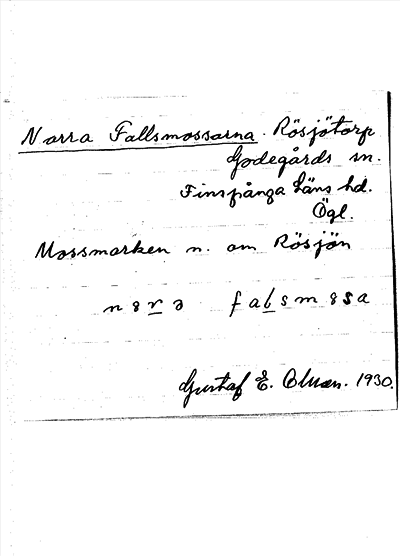 Norra Fallsmossarna. Rösjötorp
Godegårds sn.
Finspånga Läns hd.
Ögl.
Mossmarken n. om Rösjön
Gustaf E. 1930.